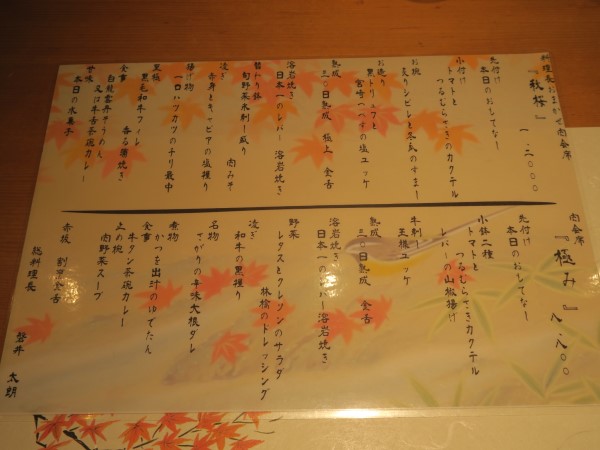 料理長おまかせ肉会席
『敦盛』 一三、〇〇〇
先付け
本日のおしてなし
小付け
トマトと
つるむらさきのカクテル
お椀
炙りシビレと冬瓜のすまし
お造り
黒トリュフと
宮崎つべすの塩ユッケ
熟成
三〇日熟成 極上 金舌
溶岩焼き
日本一のレバー 溶岩焼き
替わり鉢
旬野菜氷刺し盛り
肉みそ
凌ぎ
赤身とキャビアの塩握り
揚げ物
一口ハツカツのチリ最中
黒極
黒毛和牛フィレ
香る藻焼き
食事
白髪雲丹そうめん
又は牛舌茶碗カレー
甘味
本日の水菓子
肉会席
『極み』 八、八〇〇
先付け
本日のおしてなし
小鉢二種
トマトと
つるむらさきカクテル
レバーの山椒揚げ
牛刺し
王様ユッケ
熟成
三〇日熟成 金舌
溶岩焼き
日本一のレバー溶岩焼き
野菜
レタスとクレソンのサラダ
林檎のドレッシング
凌ぎ
和牛の黒握り
名物
さがりの辛味大根ダレ
煮物
かつを出汁のゆでたん
食事
牛タン茶碗カレー
止め椀
肉野菜スープ
赤坂 割烹金舌
総料理長
太朗